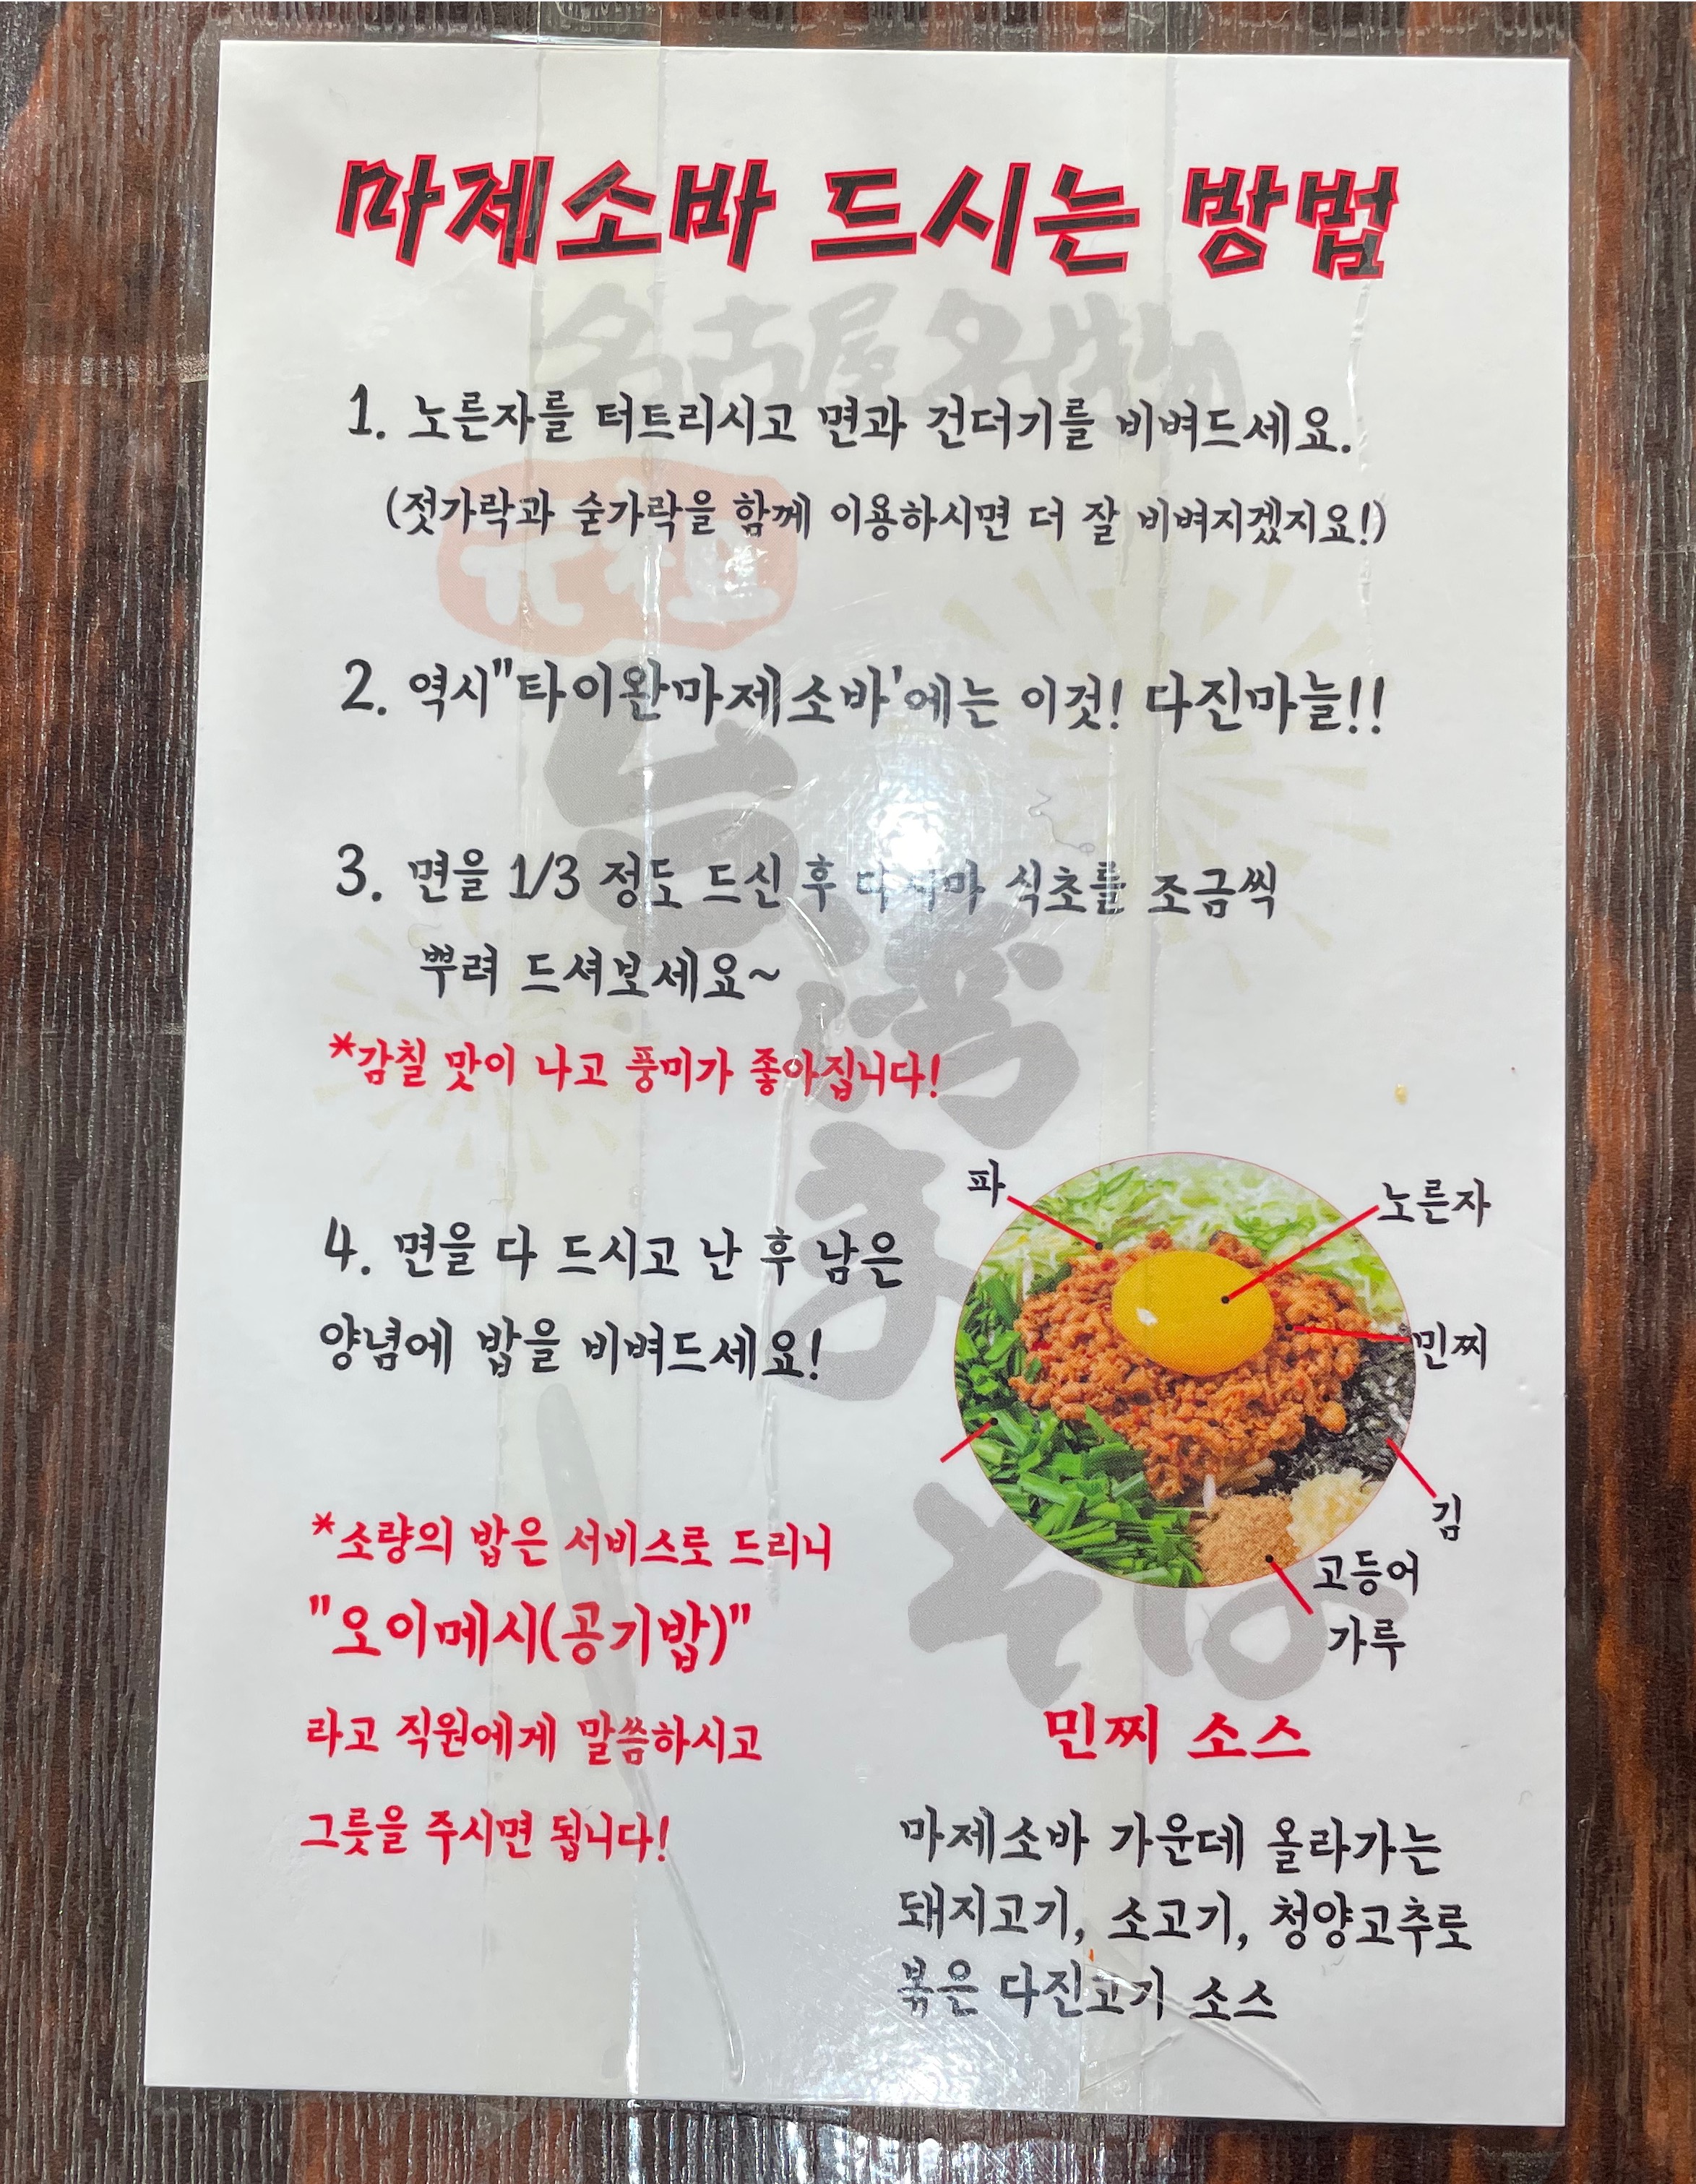 마제소바 드시는 방법
名古屋名物
1. 노른자를 터트리시고 면과 건더기를 비벼드세요.
(젓가락과 숟가락을 함께 이용하시면 더 잘 비벼지겠지요!)
元祖
2. 역시"타이완마제소바'에는 이것! 다진마늘!!
3. 면을 1/3 정도 드신 후 다시마 식초를 조금씩
뿌려 드셔보세요~
*감칠 맛이 나고 풍미가 좋아집니다!
台湾まぜそば
파
노른자
민찌
김
고등어
가루
4. 면을 다 드시고 난 후 남은
양념에 밥을 비벼드세요!
*소량의 밥은 서비스로 드리니
"오이메시(공기밥)"
라고 직원에게 말씀하시고
그릇을 주시면 됩니다!
민찌 소스
마제소바 가운데 올라가는
돼지고기, 소고기, 청양고추로
볶은 다진고기 소스